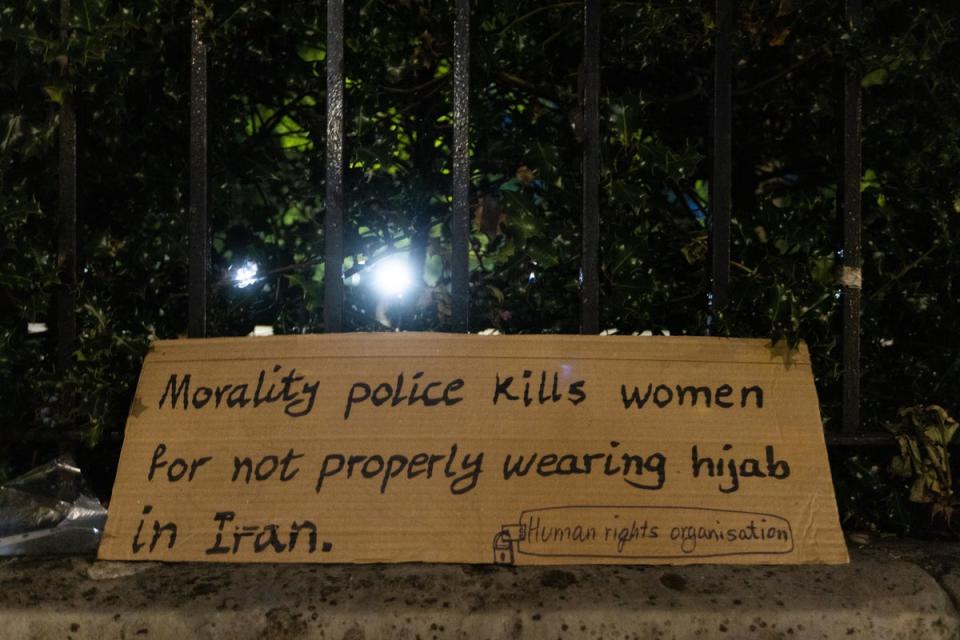 Morality police kills women
for not properly wearing hijab
in Iran.
Human rights organisation